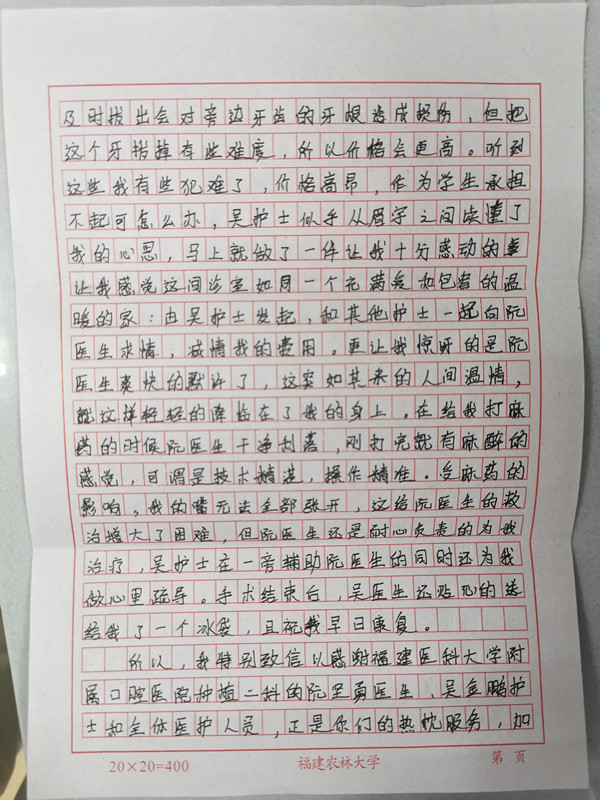 及时拔出会对旁边牙齿的牙根造成损伤，但把
这个牙拔掉有些难度，所以价格会更高。听到
这些我有些犯难了，价格高昂，作为学生承担
不起可怎么办，吴护士似乎从眉宇之间读懂了
我的心思，马上就做了一件让我十分感动的事
让我感觉这间诊室如同一个充满爱和包容的温
暖的家：由吴护士发起，和其他护士一起向阮
医生求情，减情我的费用。更让我惊讶的是阮
医生爽快的默许了，这突如其来的人间温情，
就这样轻轻的降临在了我的身上。在给我打麻
药的时候阮医生干净利落，刚打完就有麻醉的
感觉，可谓是技术精湛，操作精准。受麻药的
影响，我的嘴无法全部张开，这给阮医生的救
治增大了困难，但阮医生还是耐心负责的为我
治疗，吴护士在一旁辅助阮医生的同时还为我
做心里疏导。手术结束后，吴医生还贴心的送
给我了一个冰袋，且祝我早日康复。
所以，我特别致信以感谢福建医科大学附
属口腔医院种植二科的阮至勇医生、吴金鹏护
士和全体医护人员，正是你们的热忱服务，加
20×20=400 福建农林大学 第 页